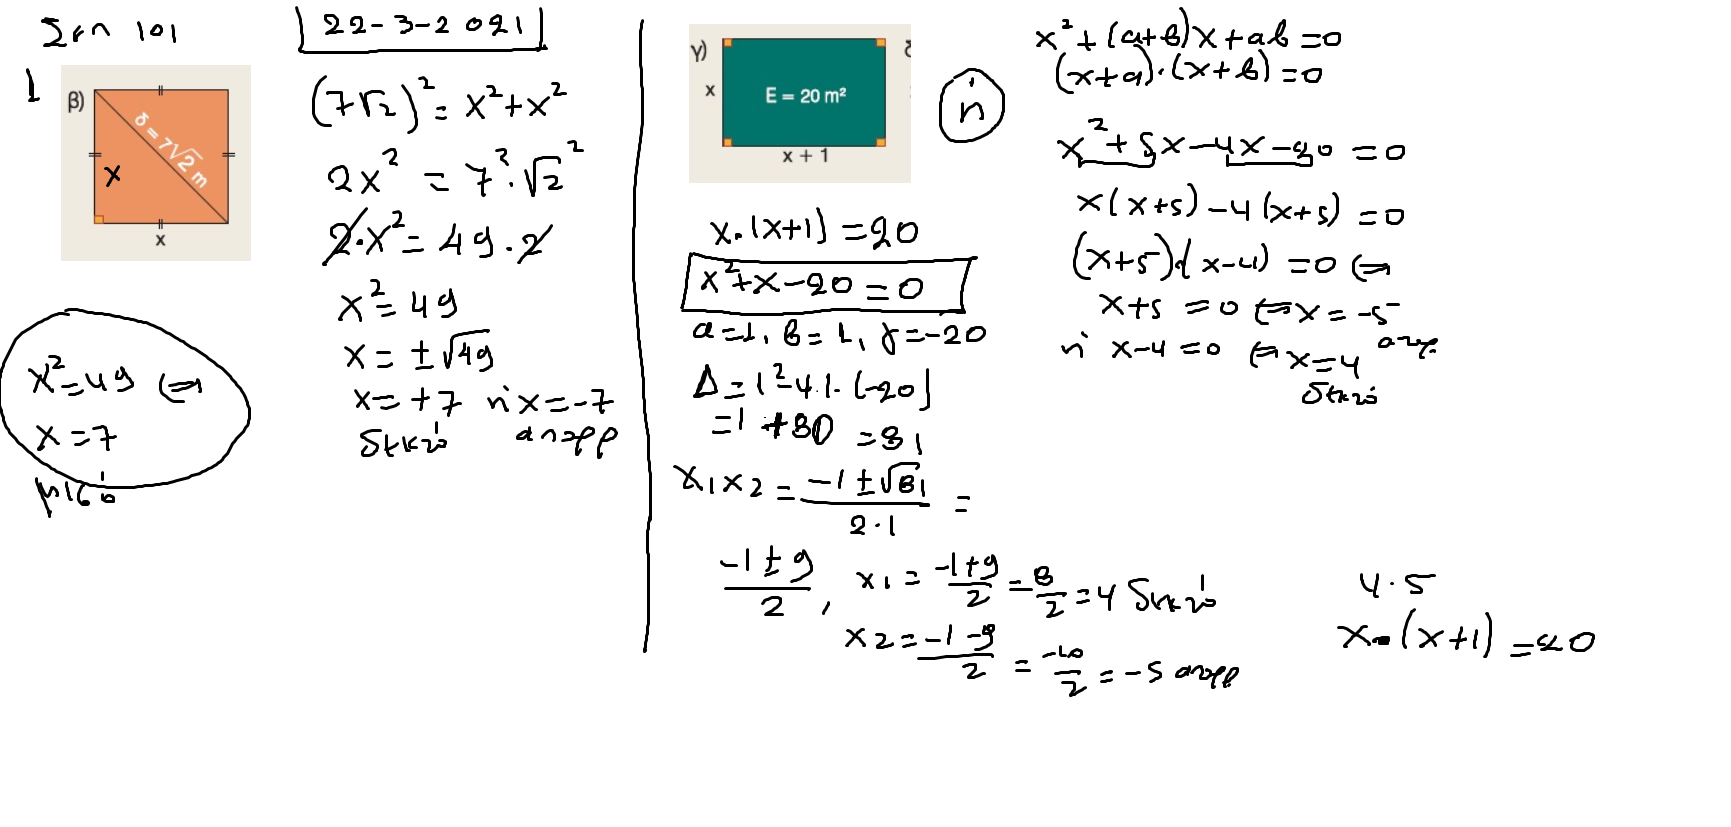 Σελ 101
22-3-2021
1
β)
δ = 7√2 m
x
x
(7√2)² = x²+x²
2x² = 7²·√2²
2·x² = 49·2
x² = 49
x = ±√49
x = +7 ή x = -7
δεκτό απορρ
x² = 49 ⇔
x = 7
μισό
γ)
x
E = 20 m²
x + 1
δ
x·(x+1) = 20
x²+x-20 = 0
α=1, β=1, γ=-20
Δ = 1²-4·1·(-20)
= 1 +80 = 81
x₁x₂ = (-1 ± √81)/(2·1) =
(-1 ± 9)/2 , x₁ = (-1+9)/2 = 8/2 = 4 δεκτό
x₂ = (-1-9)/2 = -10/2 = -5 απορρ
ή
x²+(α+β)x+αβ = 0
(x+α)·(x+β) = 0
x²+5x-4x-20 = 0
x(x+5)-4(x+5) = 0
(x+5)·(x-4) = 0 ⇔
x+5 = 0 ⇔ x = -5
απορ
ή x-4 = 0 ⇔ x = 4
δεκτό
4·5
x·(x+1) = 20